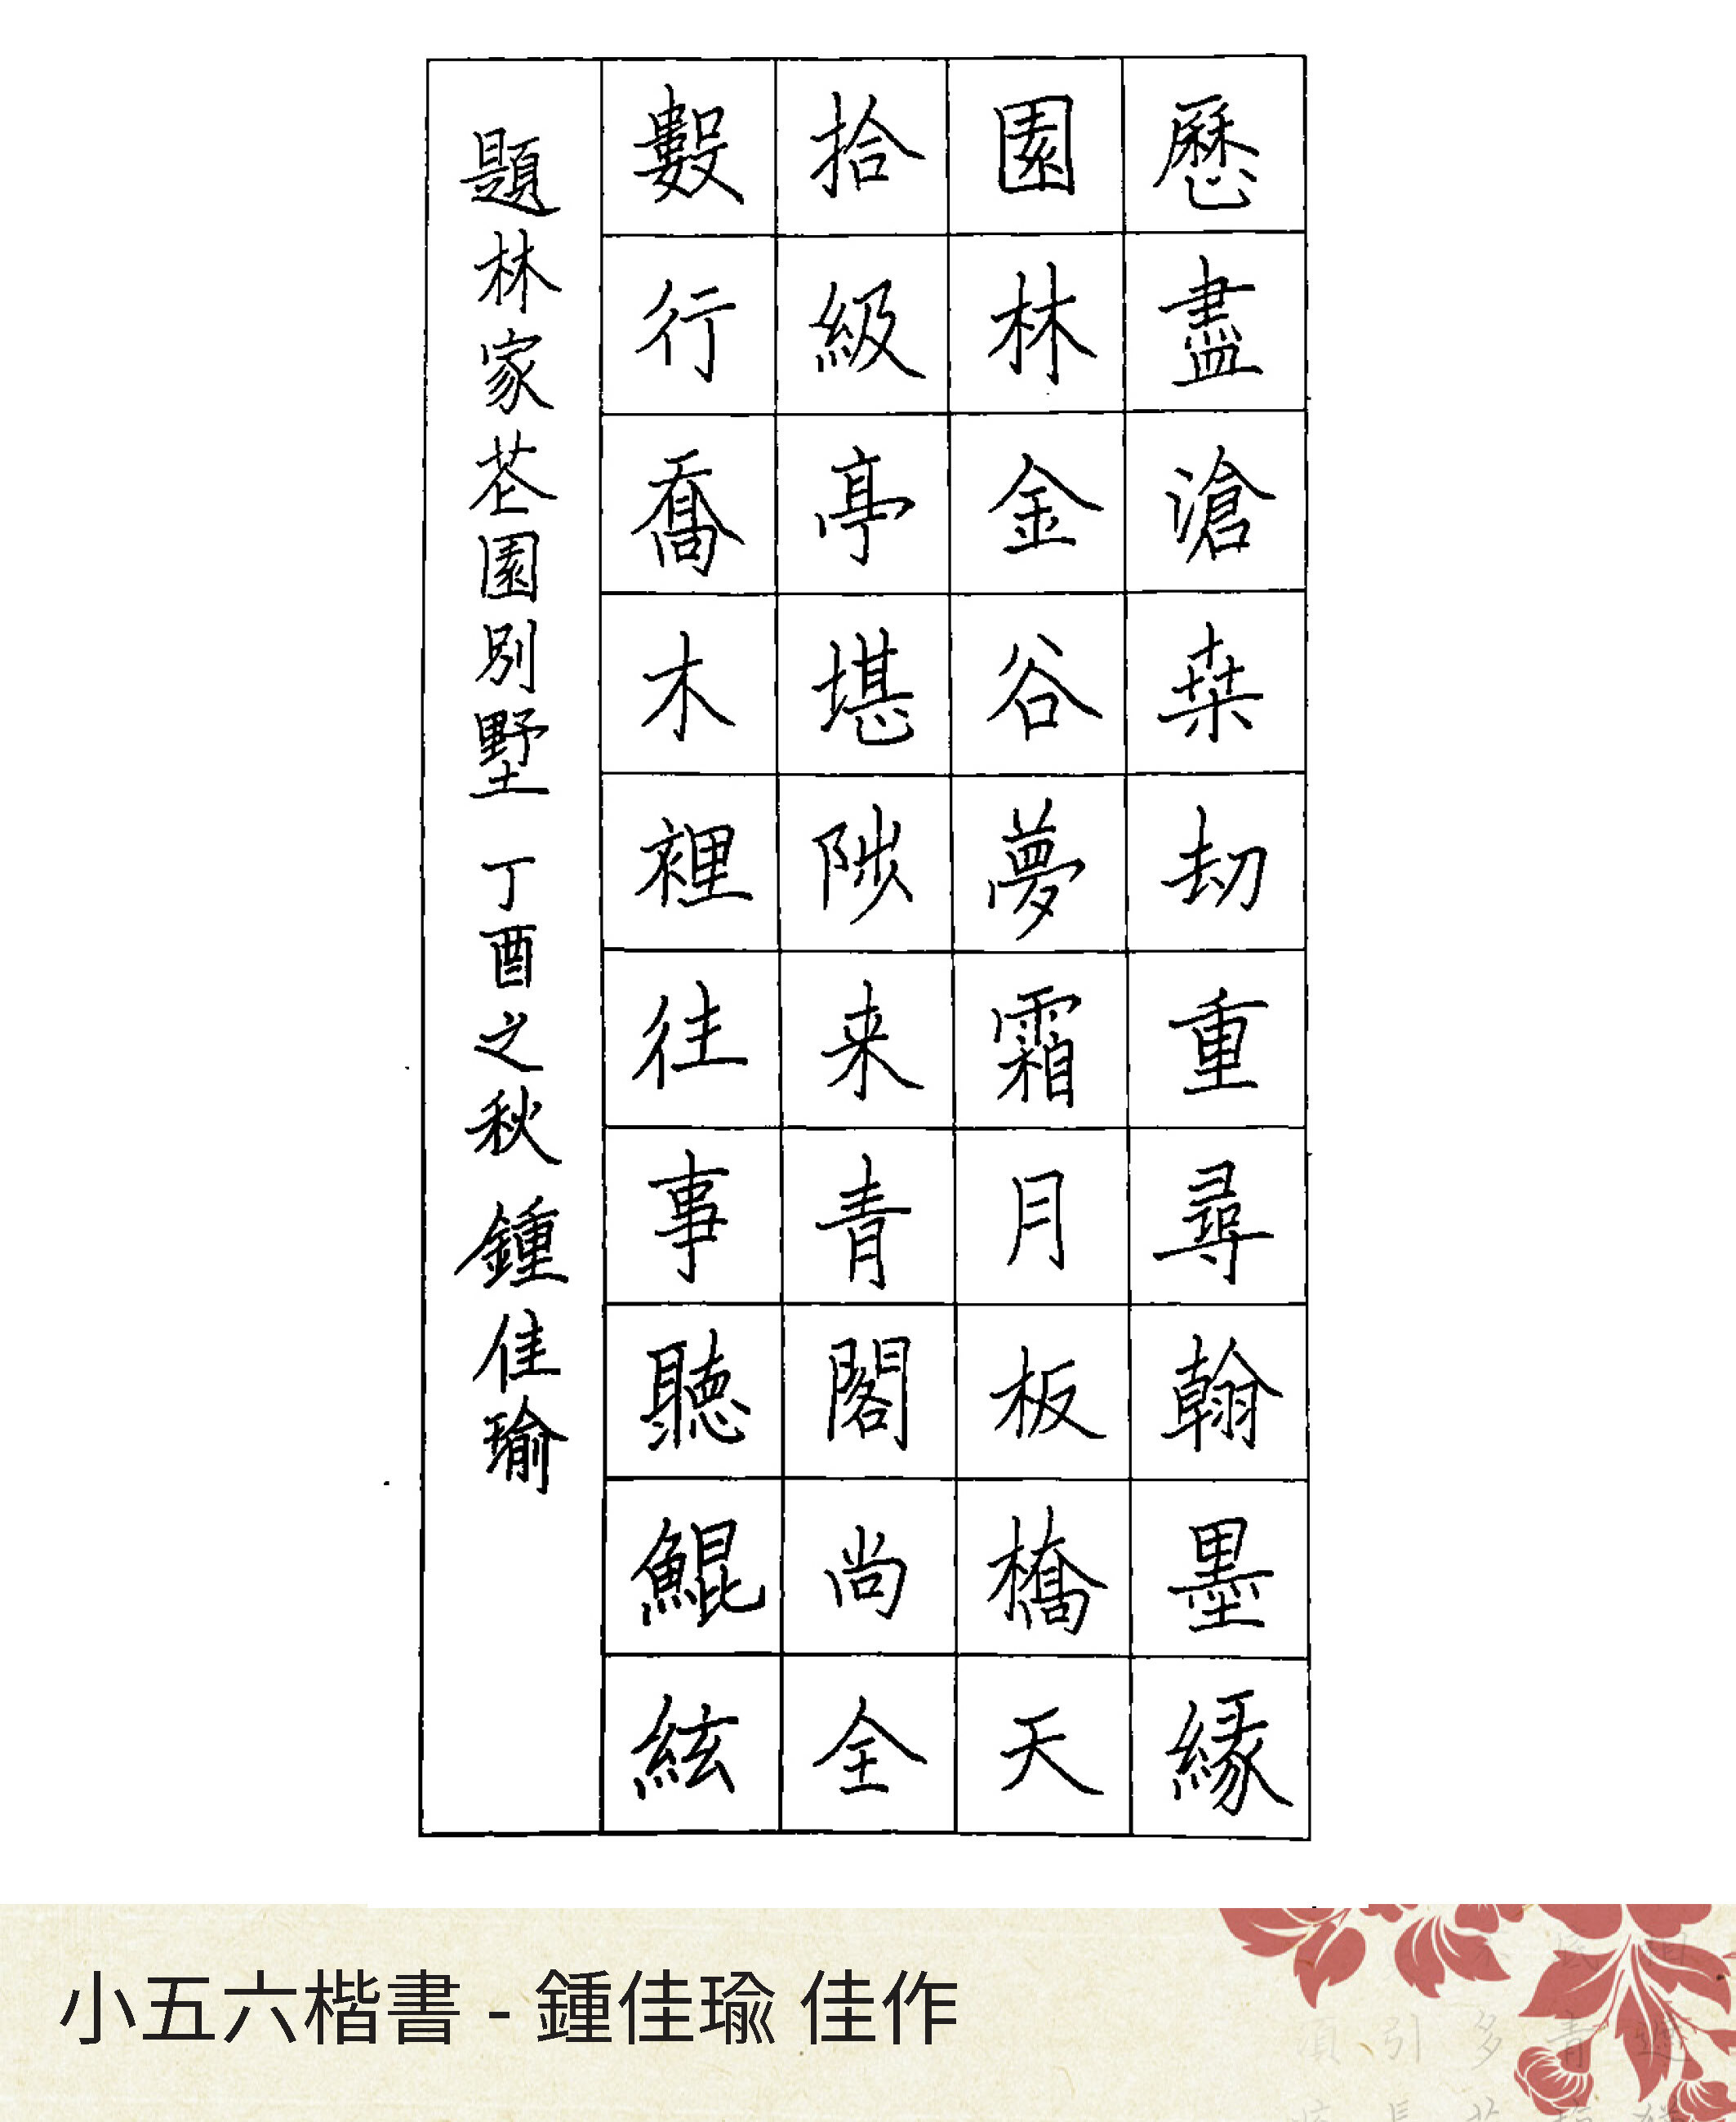 歷盡滄桒劫重尋翰墨緣
園林金谷夢霜月板橋天
拾級亭堪陟来青閣尚全
數行喬木裡往事聽鯤絃
題林家苍園別墅 丁酉之秋 鍾佳瑜
小五六楷書 - 鍾佳瑜 佳作